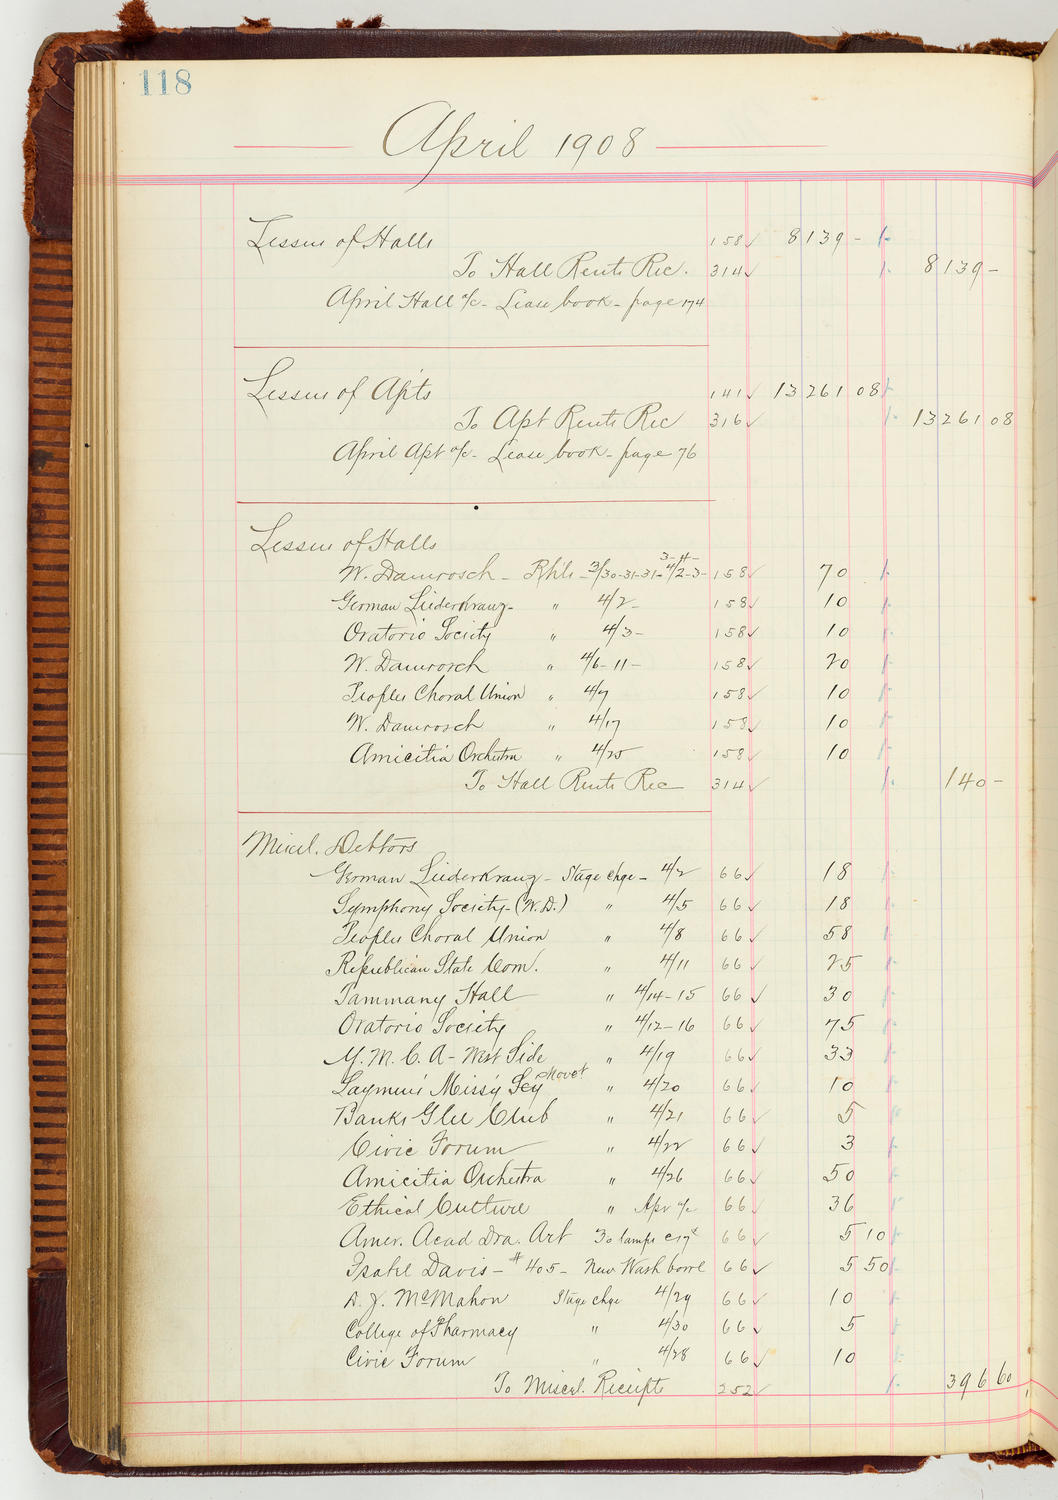 118
April 1908
Lessees of Halls 158 ✓ 8139 -
To Hall Rents Rec. 314 ✓ 8139 -
April Hall a/c - Lease book - page 174
Lessees of Apts 141 ✓ 13261 08
To Apt Rents Rec 316 ✓ 13261 08
April Apt a/c - Lease book - page 76
Lessees of Halls
W. Damrosch - Rhls - 3/30-31-31- 4/2-3-3-4- 158 ✓ 70
German Liederkranz - " 4/2 - 158 ✓ 10
Oratorio Society " 4/3 - 158 ✓ 10
W. Damrosch " 4/6 - 11 - 158 ✓ 20
Peoples Choral Union " 4/7 158 ✓ 10
W. Damrosch " 4/17 158 ✓ 10
Amicitia Orchestra " 4/25 158 ✓ 10
To Hall Rents Rec 314 ✓ 140 -
Miscel. Debtors
German Liederkranz - Stage chge - 4/2 66 ✓ 18
Symphony Society - (W. D.) " 4/5 66 ✓ 18
Peoples Choral Union " 4/8 66 ✓ 58
Republican State Com. " 4/11 66 ✓ 25
Tammany Hall " 4/14-15 66 ✓ 30
Oratorio Society " 4/12-16 66 ✓ 75
Y. M. C. A - West Side " 4/19 66 ✓ 33
Laymens Missy Movet " 4/20 66 ✓ 10
Banks Glee Club " 4/21 66 ✓ 5
Civic Forum " 4/22 66 ✓ 3
Amicitia Orchestra " 4/26 66 ✓ 50
Ethical Culture " Apr a/c 66 ✓ 36
Amer. Acad Dra. Art 30 lamps 66 ✓ 5 10
Isabel Davis - #405 - New Wash bowl 66 ✓ 5 50
D. J. McMahon Stage chge 4/29 66 ✓ 10
College of Pharmacy " 4/30 66 ✓ 5
Civic Forum " 4/28 66 ✓ 10
To Miscel. Receipts 252 ✓ 396 60